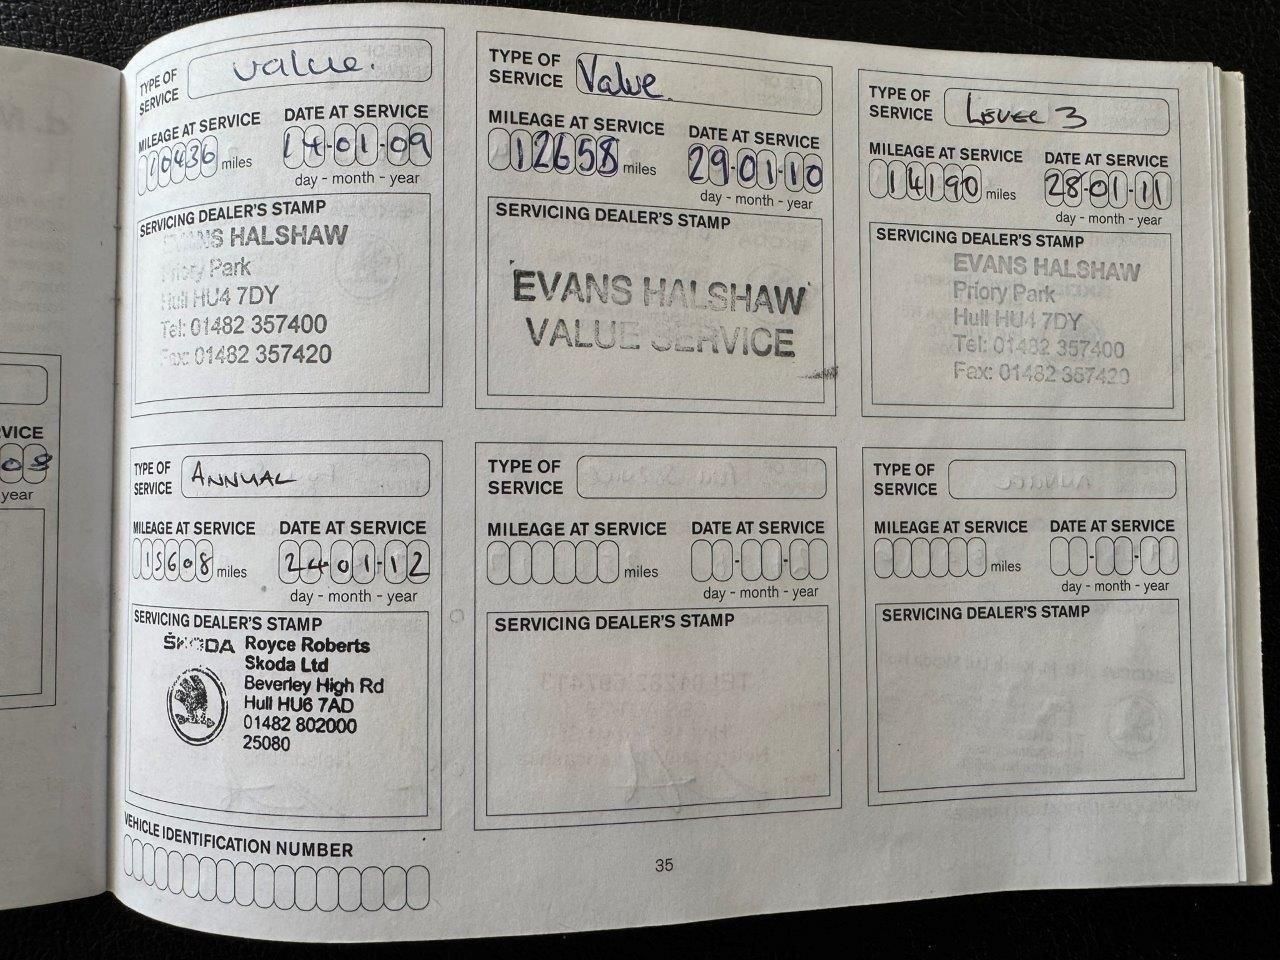 TYPE OF
SERVICE
value.
MILEAGE AT SERVICE
10436 miles
DATE AT SERVICE
14-01-09
day - month - year
SERVICING DEALER'S STAMP
EVANS HALSHAW
Priory Park
Hull HU4 7DY
Tel: 01482 357400
Fax: 01482 357420
TYPE OF
SERVICE
Value.
MILEAGE AT SERVICE
12658 miles
DATE AT SERVICE
29-01-10
day - month - year
SERVICING DEALER'S STAMP
EVANS HALSHAW
VALUE SERVICE
TYPE OF
SERVICE
LEVEL 3
MILEAGE AT SERVICE
14190 miles
DATE AT SERVICE
28-01-11
day - month - year
SERVICING DEALER'S STAMP
EVANS HALSHAW
Priory Park
Hull HU4 7DY
Tel: 01482 357400
Fax: 01482 357420
TYPE OF
SERVICE
ANNUAL
MILEAGE AT SERVICE
15608 miles
DATE AT SERVICE
24-01-12
day - month - year
SERVICING DEALER'S STAMP
ŠKODA
Royce Roberts
Skoda Ltd
Beverley High Rd
Hull HU6 7AD
01482 802000
25080
TYPE OF
SERVICE
MILEAGE AT SERVICE
miles
DATE AT SERVICE
day - month - year
SERVICING DEALER'S STAMP
TYPE OF
SERVICE
MILEAGE AT SERVICE
miles
DATE AT SERVICE
day - month - year
SERVICING DEALER'S STAMP
VEHICLE IDENTIFICATION NUMBER
35